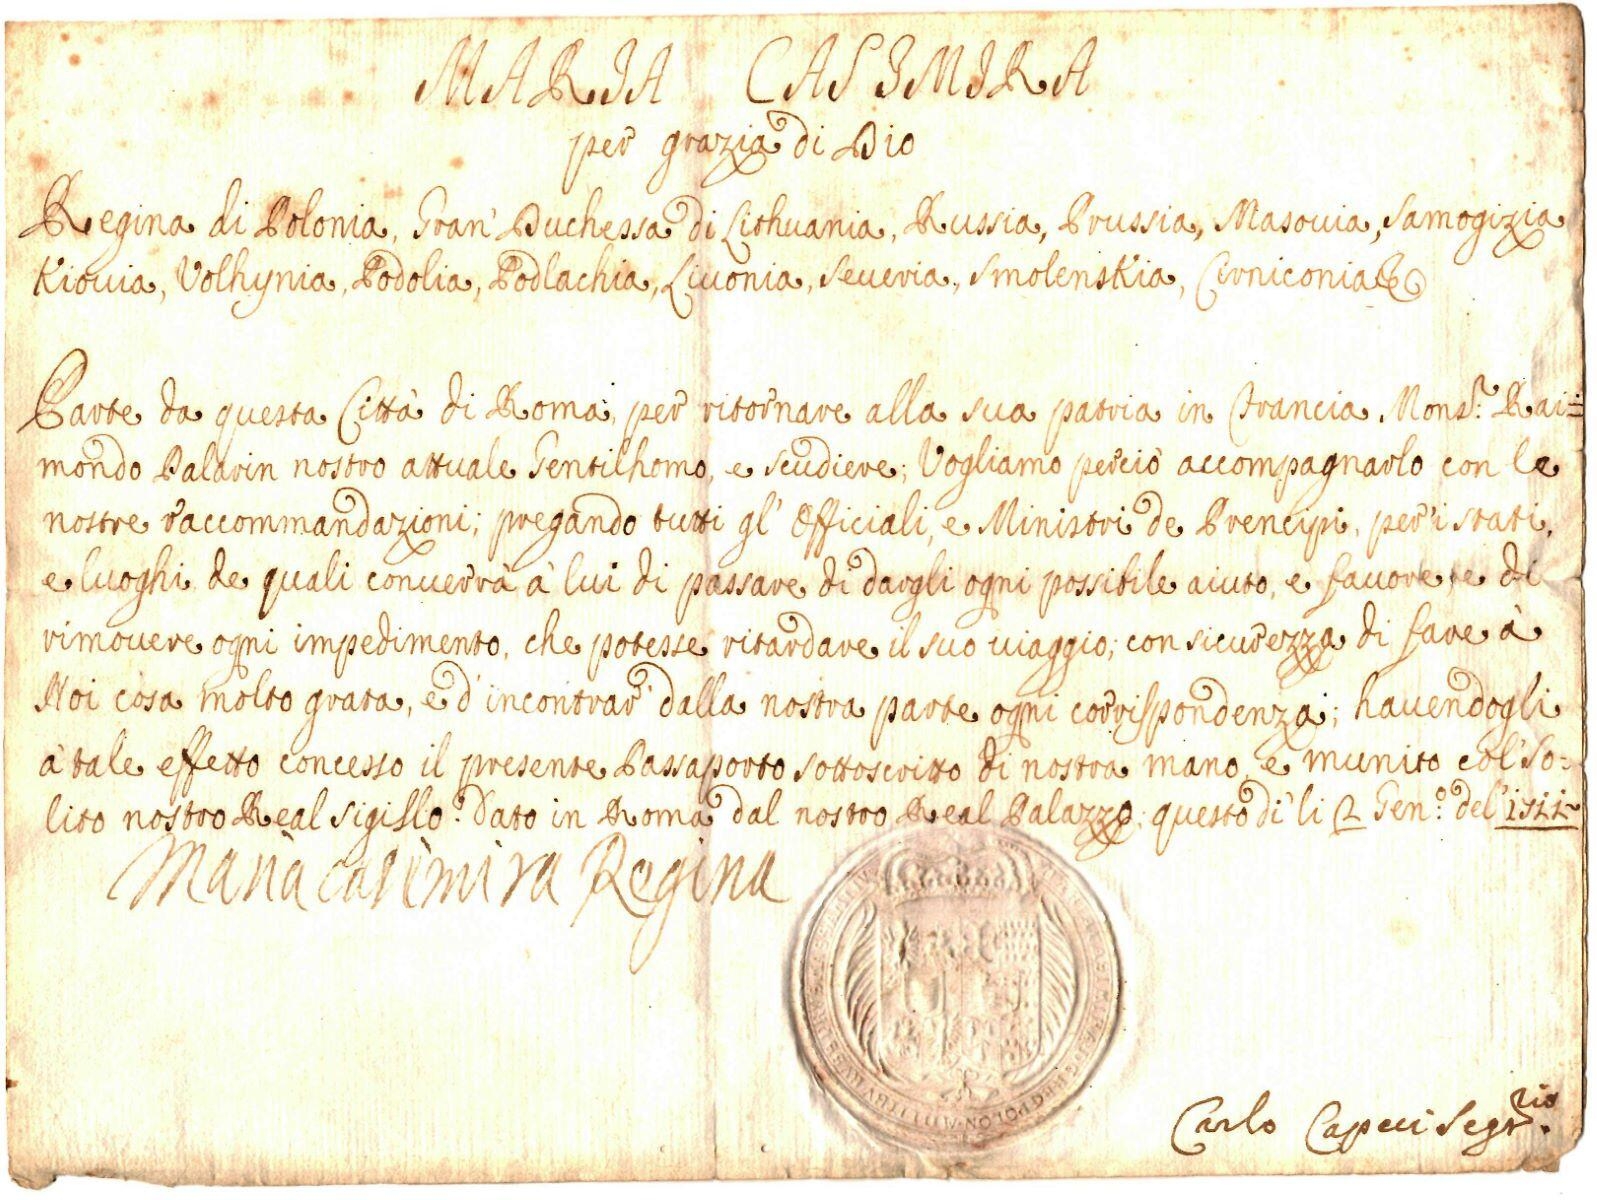 MARIA CASIMIRA
per grazia di Dio
Regina di Polonia, Gran' Duchessa di Lithuania, Russia, Prussia, Masovia, Samogizia
Kiovia, Volhynia, Podolia, Podlachia, Livonia, Severia, Smolenskia, Cerniconia &c
Parte da questa Città di Roma, per ritornare alla sua patria in Francia Mons.r Rai=
mondo Palarin nostro attuale Gentilhomo, e scudiere; Vogliamo perciò accompagnarlo con le
nostre raccommandazioni; pregando tutti gl' Officiali, e Ministri de Prencipi, per i stati,
e luoghi de quali converrà à lui di passare di dargli ogni possibile aiuto, e favore, e di
rimovere ogni impedimento, che potesse ritardare il suo viaggio; con sicurezza di fare à
Noi cosa molto grata, e d' incontrar' dalla nostra parte ogni corrispondenza; havendogli
à tale effetto concesso il presente Passaporto sottoscritto di nostra mano, e munito col' so=
lito nostro Real sigillo. Dato in Roma dal nostro Real Palazzo; questo dì li 2 Gen.o del' 1711
Maria Casimira Regina
REG POLON M
Carlo Capeci Segr.rio